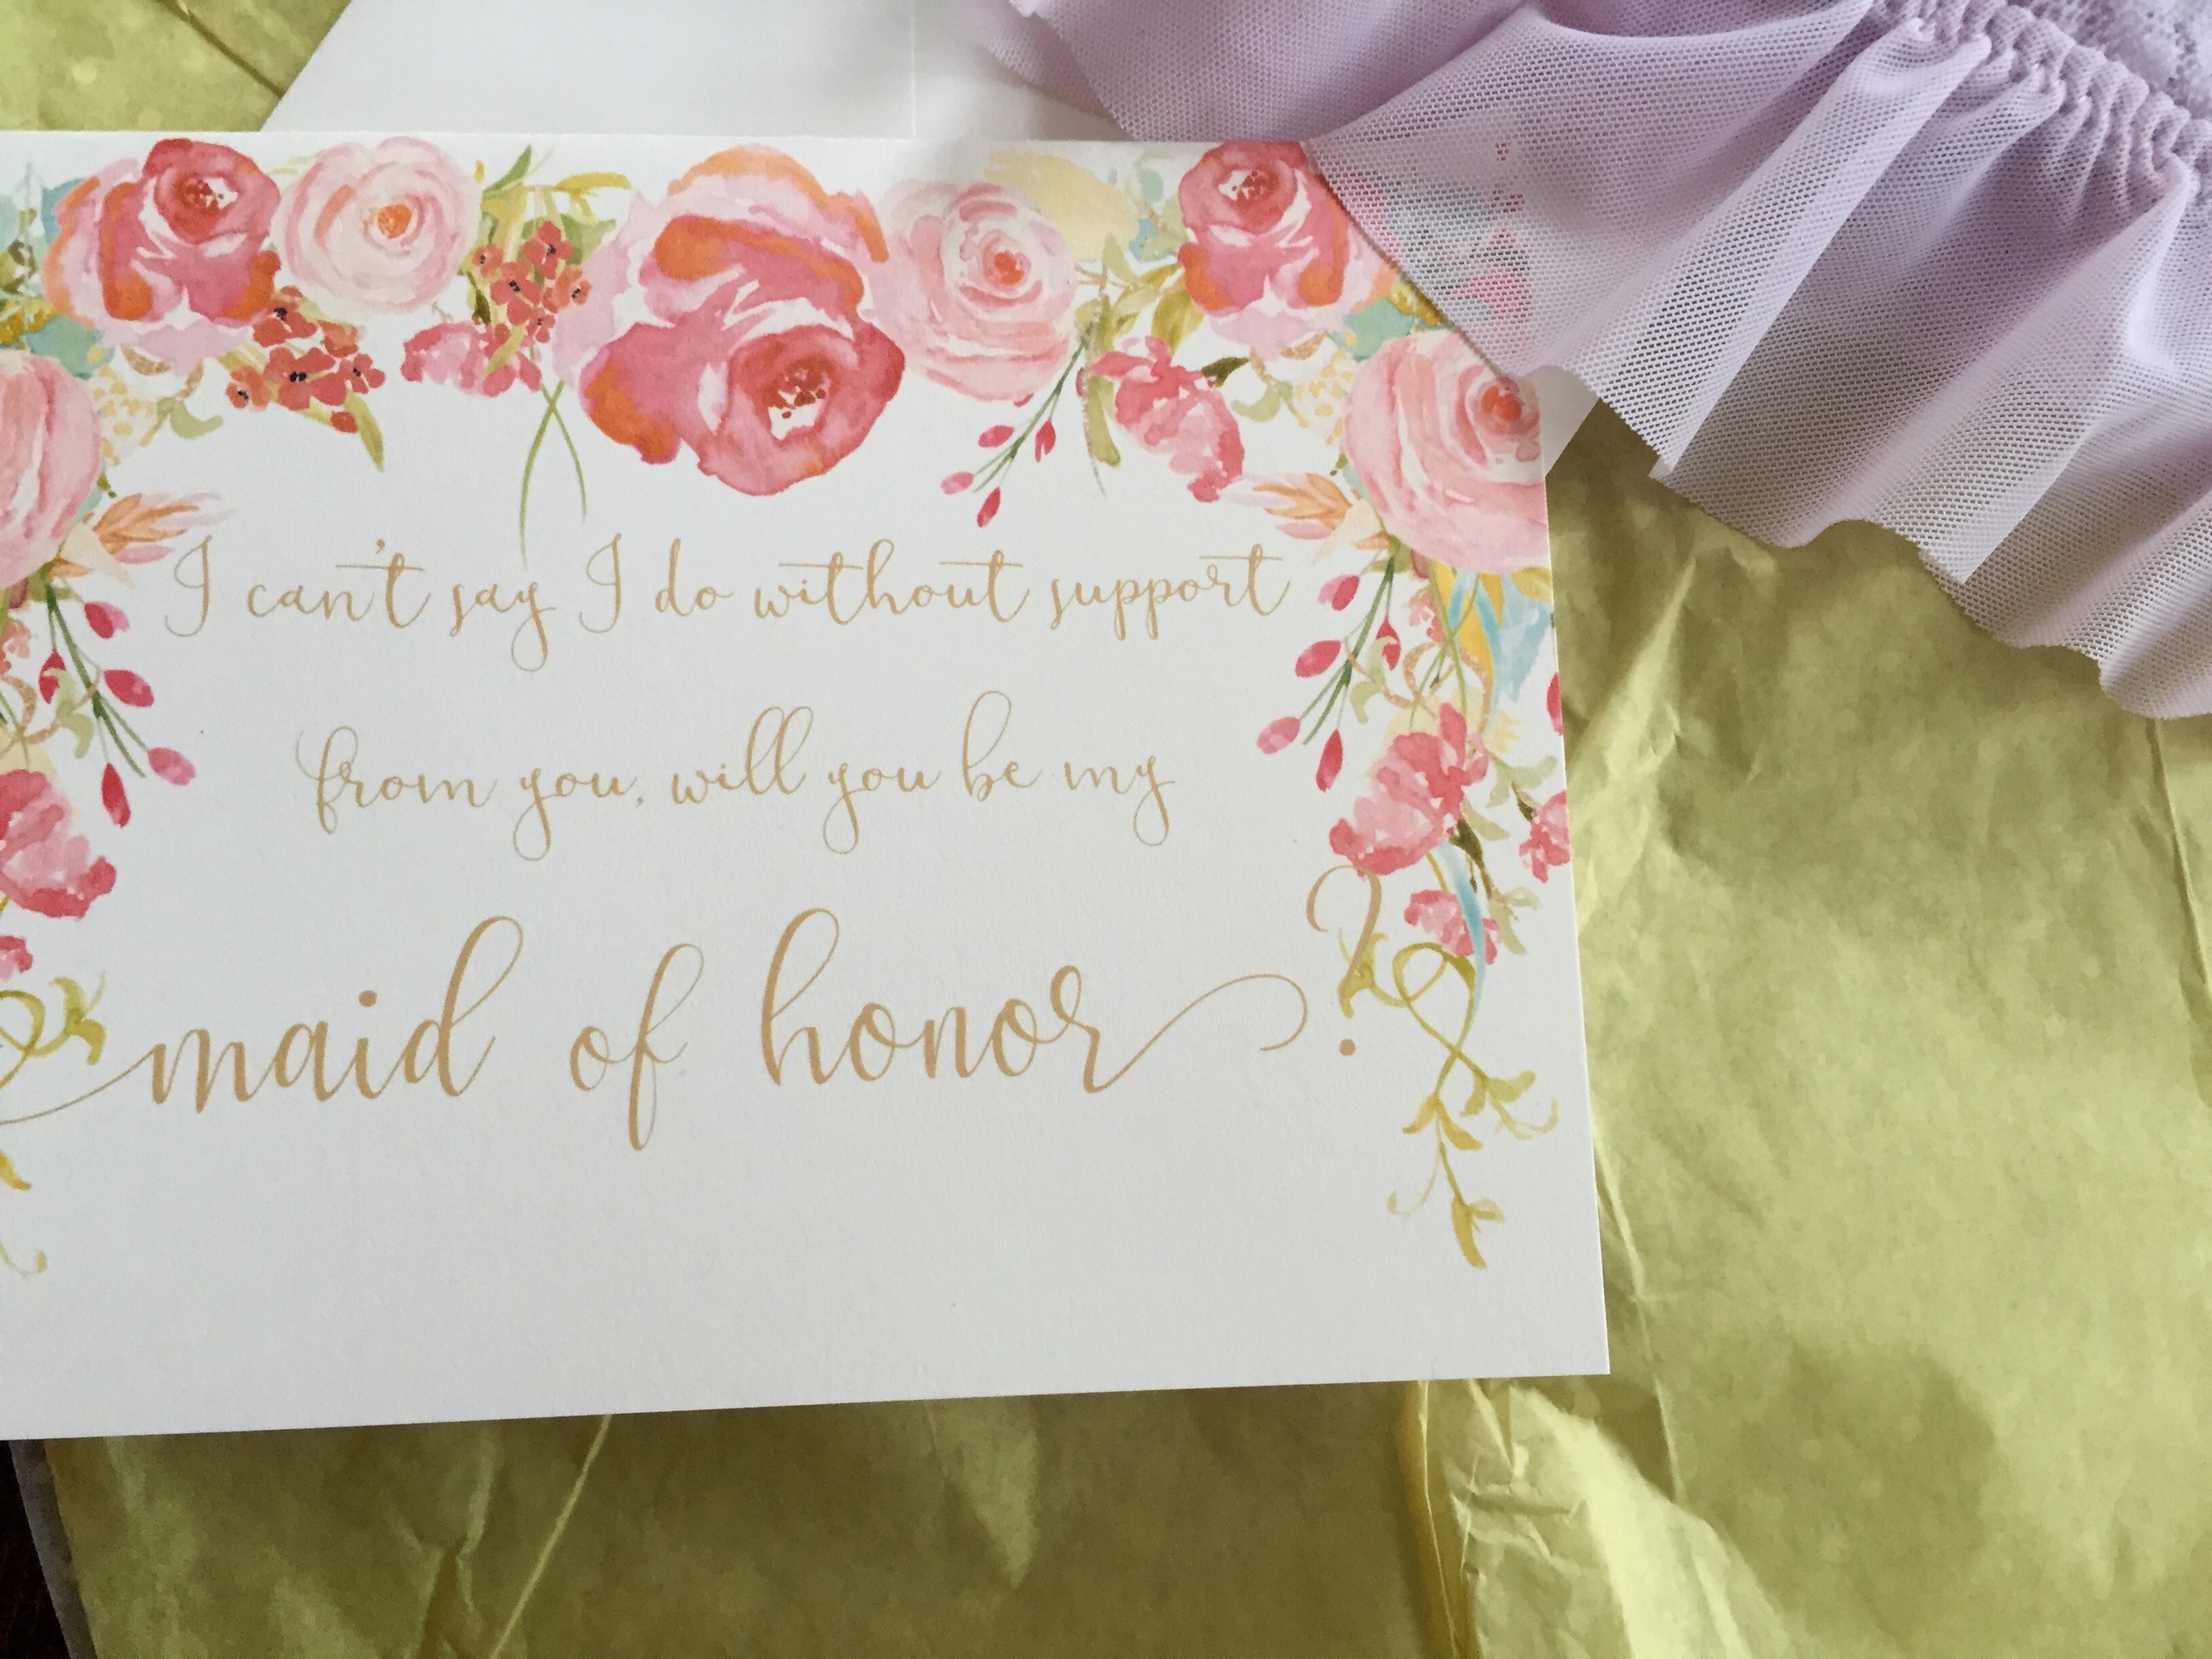 I can't say I do without support
from you, will you be my
maid of honor?